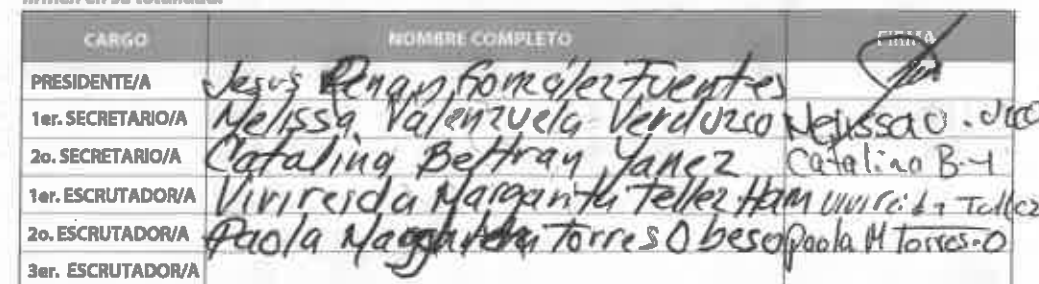 firmar en su totalidad.
CARGO NOMBRE COMPLETO FIRMA
PRESIDENTE/A Jesus Renan González Fuentes
1er. SECRETARIO/A Melissa Valenzuela Verduzco Melissa V.
2o. SECRETARIO/A Catalina Beltran Yanez Catalina B-Y
1er. ESCRUTADOR/A Vivireida Margarita Tellez Ham Vivireida Tellez
2o. ESCRUTADOR/A Paola Torres Obeso Paola M Torres-O
3er. ESCRUTADOR/A